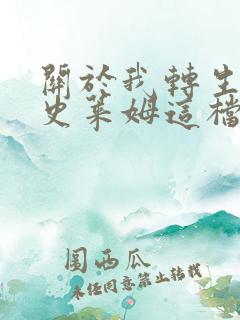 關於我轉生
史萊姆這檔
圖西瓜
未任同意禁止转载